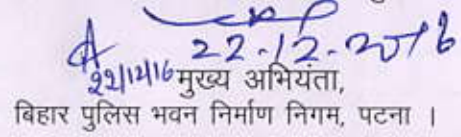 22-12-2016
22/12/16 मुख्य अभियंता,
बिहार पुलिस भवन निर्माण निगम, पटना ।